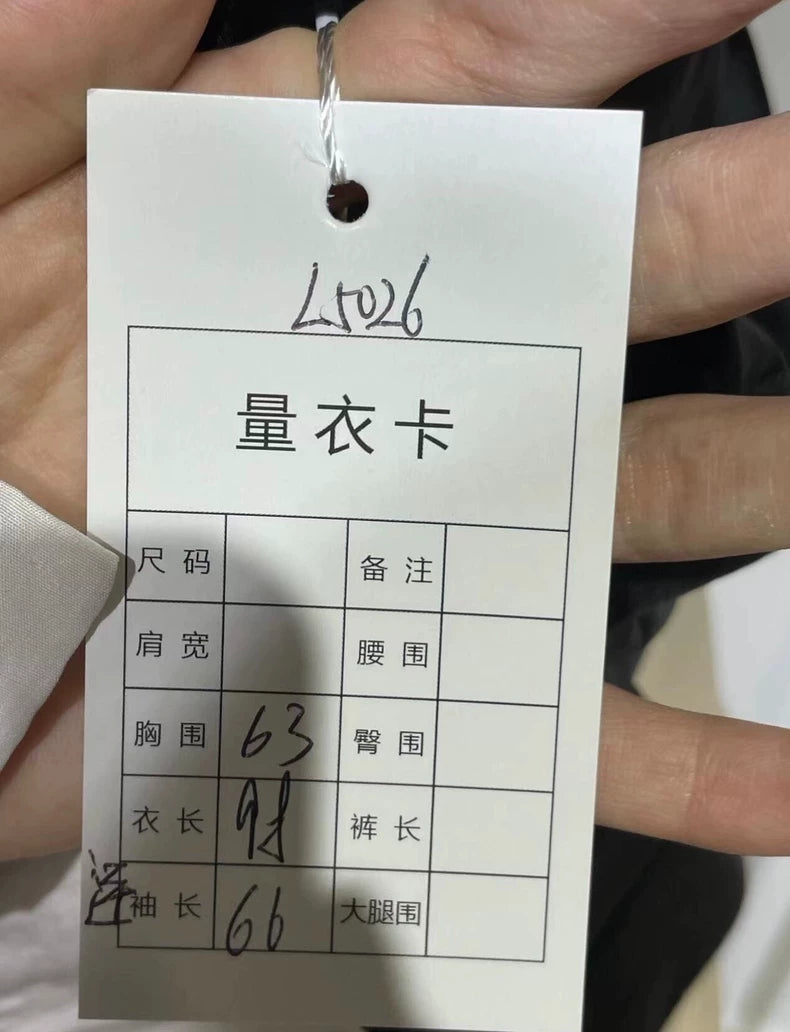 L5026
量衣卡
尺码 备注
肩宽 腰围
胸围 63 臀围
衣长 裤长
连袖长 66 大腿围